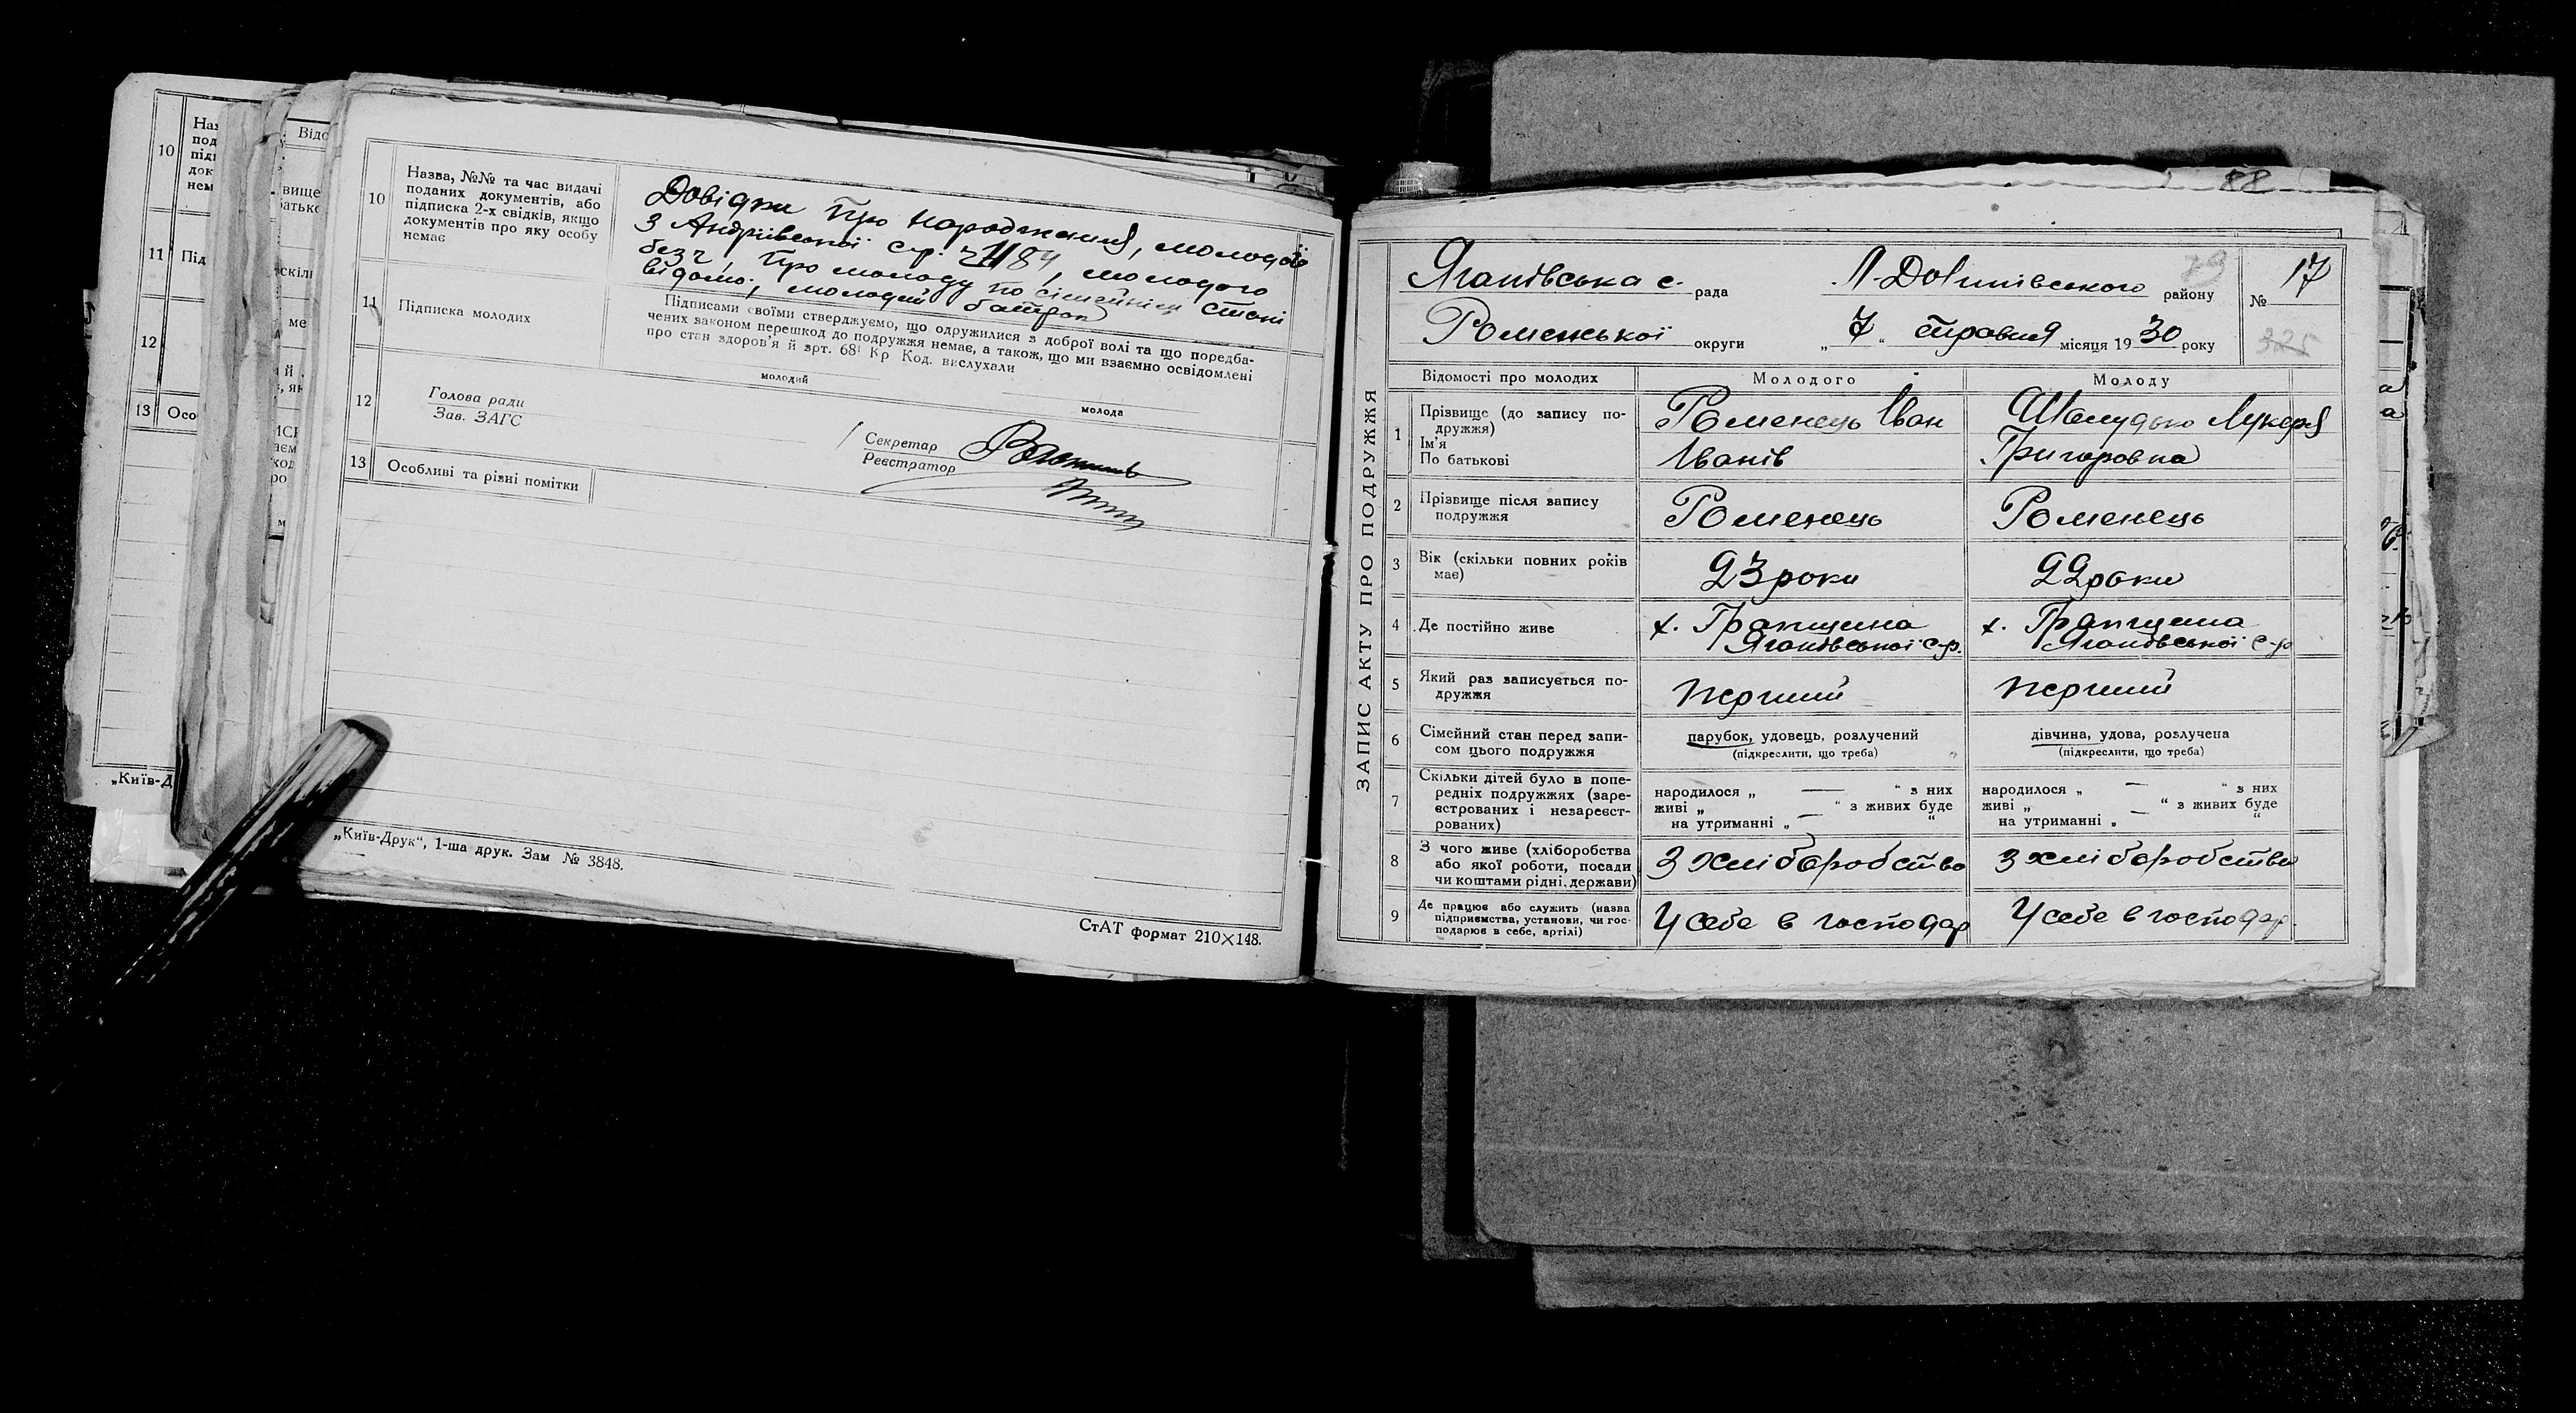 10
Наз
под
підп
док
нем
11 Під
12
13 Осо
„Київ-Д
Відо
10
Назва, №№ та час видачі
поданих документів, або
підписка 2-х свідків, якщо
документів про яку особу
немає
Довідки про народження, молодої
з Андріївської с-р. 84, молодого
без ч, про молоду по сімейнім стані
відомо, молодий батрак
11
Підписка молодих
Підписами своїми стверджуємо, що одружилися з доброї волі та що передба-
чених законом перешкод до подружжя немає, а також, що ми взаємно освідомлені
про стан здоров'я й арт. 68¹ Кр Код. вислухали
молодий
молода
12
Голова ради
Зав. ЗАГС
Секретар
Реєстратор
13 Особливі та різні помітки
„Київ-Друк", 1-ша друк. Зам № 3848.
СтАТ формат 210×148.
88
ЗАПИС АКТУ ПРО ПОДРУЖЖЯ
79
Яганівська с. рада Л-Долинівського району № 17
Роменської округи „7" травня місяця 1930 року
325
Відомості про молодих Молодого Молоду
1
Прізвище (до запису по-
дружжя)
Ім'я
По батькові
Роменець Іван
Іванів
Шелудько Лукеря
Григоровна
2
Прізвище після запису
подружжя
Роменець
Роменець
3
Вік (скільки повних років
має)
23 роки
22 роки
4
Де постійно живе
х. Грапщина
Яганівської с-р.
х. Грапщина
Яганівської с-р
5
Який раз записується по-
дружжя
перший
перший
6
Сімейний стан перед запи-
сом цього подружжя
парубок, удовець, розлучений
(підкреслити, що треба)
дівчина, удова, розлучена
(підкреслити, що треба)
7
Скільки дітей було в попе-
редніх подружжях (заре-
єстрованих і незареєст-
рованих)
народилося „ — " з них
живі „ — " з живих буде
на утриманні „ — "
народилося „ — " з них
живі „ — " з живих буде
на утриманні „ — "
8
З чого живе (хліборобства
або якої роботи, посади
чи коштами рідні, держави)
З хліборобства
З хліборобства
9
Де працює або служить (назва
підприємства, установи, чи гос-
подарює в себе, артілі)
У себе в господар
У себе в господар.